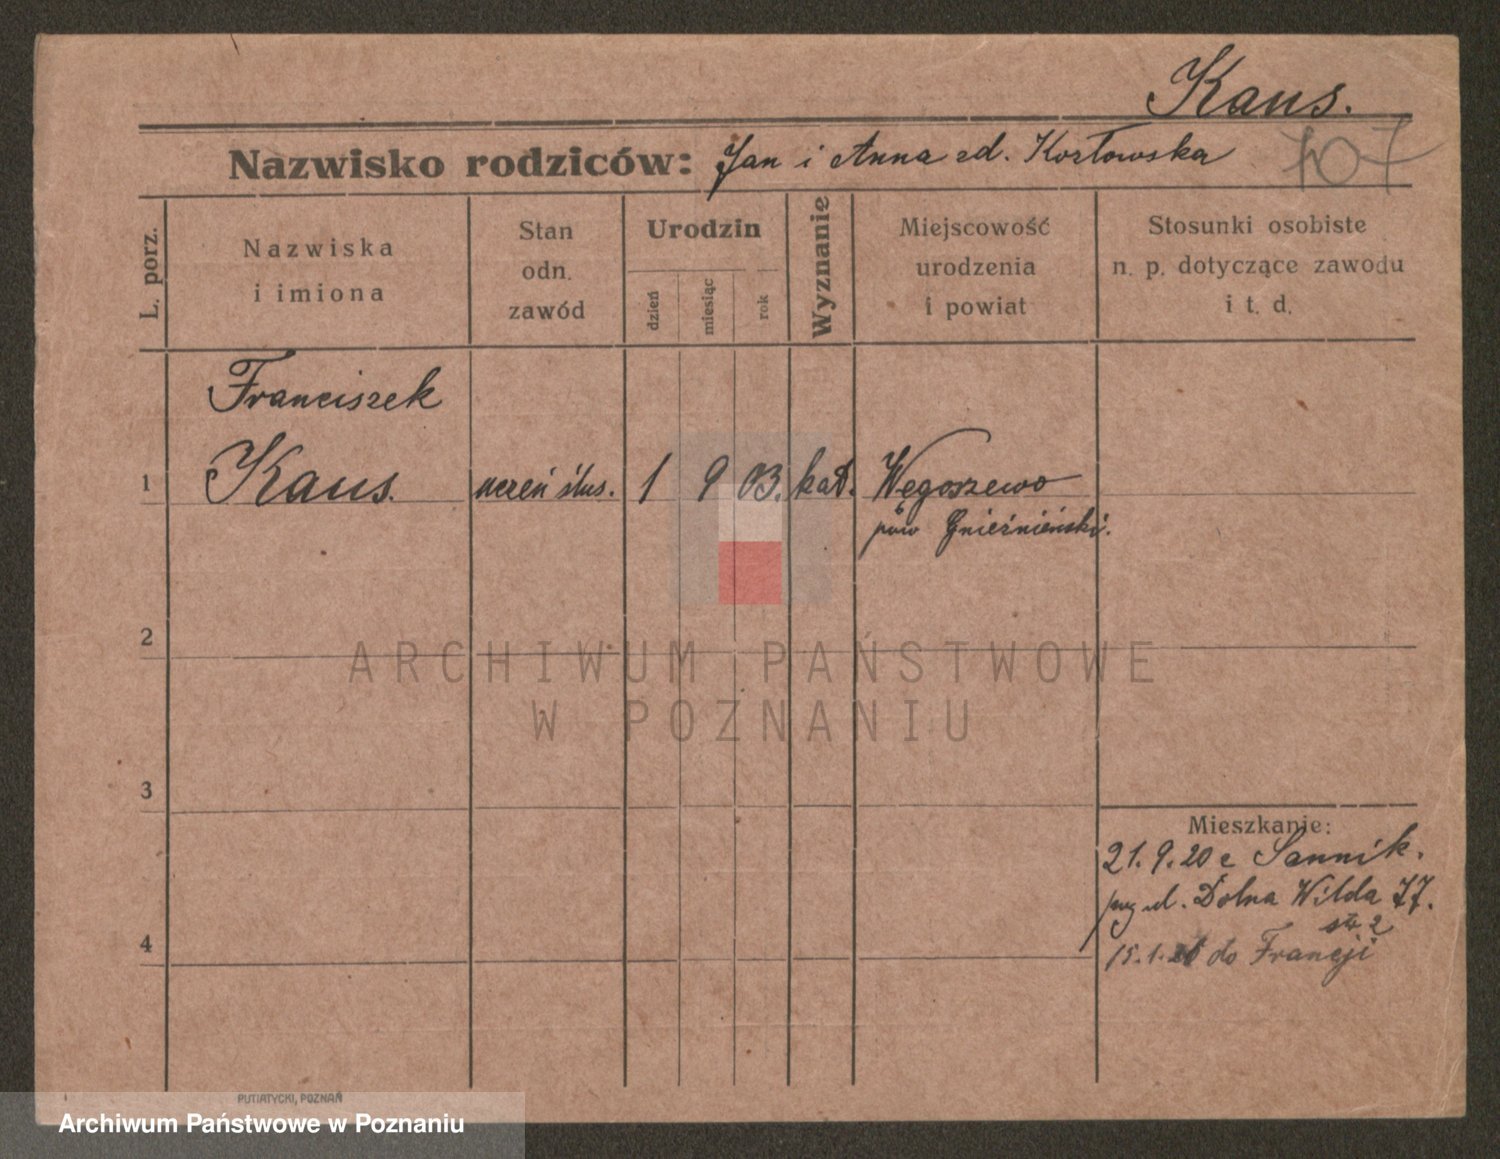 Kaus.
Nazwisko rodziców: Jan i Anna zd. Kozłowska
707
L. porz.
Nazwiska
i imiona
Stan
odn.
zawód
Urodzin
dzień
miesiąc
rok
Wyznanie
Miejscowość
urodzenia
i powiat
Stosunki osobiste
n. p. dotyczące zawodu
i t. d.
Franciszek
1 Kaus. uczeń ślus. 1 9 03. kat. Węgoszewo
pow Gnieźnieński.
2
ARCHIWUM PAŃSTWOWE
W POZNANIU
3
Mieszkanie:
21. 9. 20 z Sannik.
ul. Dolna Wilda 77.
4
15.1. do Francji
PUTIATYCKI, POZNAŃ
Archiwum Państwowe w Poznaniu